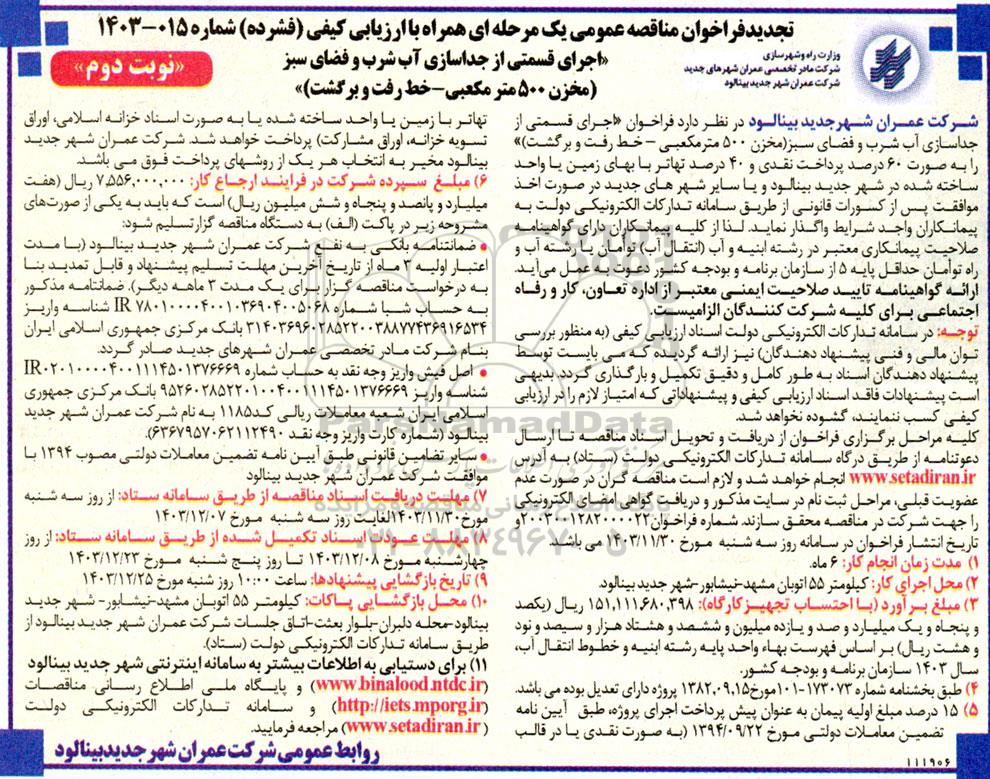 تجدیدفراخوان مناقصه عمومی یک مرحله ای همراه با ارزیابی کیفی (فشرده) شماره ۰۱۵-۱۴۰۳
«اجرای قسمتی از جداسازی آب شرب و فضای سبز
(مخزن ۵۰۰ متر مکعبی-خط رفت و برگشت)»
«نوبت دوم»
وزارت راه و شهرسازی
شرکت مادر تخصصی عمران شهرهای جدید
شرکت عمران شهر جدید بینالود
شرکت عمران شهر جدید بینالود در نظر دارد فراخوان «اجرای قسمتی از
جداسازی آب شرب و فضای سبز(مخزن ۵۰۰ مترمکعبی – خط رفت و برگشت)»
را به صورت ۶۰ درصد پرداخت نقدی و ۴۰ درصد تهاتر با بهای زمین یا واحد
ساخته شده در شهر جدید بینالود و یا سایر شهر های جدید در صورت اخذ
موافقت پس از کسورات قانونی از طریق سامانه تدارکات الکترونیکی دولت به
پیمانکاران واجد شرایط واگذار نماید. لذا از کلیه پیمانکاران دارای گواهینامه
صلاحیت پیمانکاری معتبر در رشته ابنیه و آب (انتقال آب) توأمان یا رشته آب و
راه توأمان حداقل پایه ۵ از سازمان برنامه و بودجه کشور دعوت به عمل می‌آید.
ارائه گواهینامه تایید صلاحیت ایمنی معتبر از اداره تعاون، کار و رفاه
اجتماعی برای کلیه شرکت کنندگان الزامیست.
توجه: در سامانه تدارکات الکترونیکی دولت اسناد ارزیابی کیفی (به منظور بررسی
توان مالی و فنی پیشنهاد دهندگان) نیز ارائه گردیده که می بایست توسط
پیشنهاد دهندگان اسناد به طور کامل و دقیق تکمیل و بارگذاری گردد. بدیهی
است پیشنهادات فاقد اسناد ارزیابی کیفی و پیشنهاداتی که امتیاز لازم را در ارزیابی
کیفی کسب ننمایند، گشوده نخواهد شد.
کلیه مراحل برگزاری فراخوان از دریافت و تحویل اسناد مناقصه تا ارسال
دعوتنامه از طریق درگاه سامانه تدارکات الکترونیکی دولت (ستاد) به آدرس
www.setadiran.ir انجام خواهد شد و لازم است مناقصه گران در صورت عدم
عضویت قبلی، مراحل ثبت نام در سایت مذکور و دریافت گواهی امضای الکترونیکی
را جهت شرکت در مناقصه محقق سازند. شماره فراخوان ۲۰۰۳۰۰۱۲۸۲۰۰۰۰۲۲ و
تاریخ انتشار فراخوان در سامانه روز سه شنبه مورخ ۱۴۰۳/۱۱/۳۰ می باشد.
۱) مدت زمان انجام کار: ۶ ماه.
۲) محل اجرای کار: کیلومتر ۵۵ اتوبان مشهد-نیشابور-شهر جدید بینالود.
۳) مبلغ برآورد (با احتساب تجهیزکارگاه): ۱۵۱,۱۱۱,۶۸۰,۳۹۸ ریال (یکصد
و پنجاه و یک میلیارد و صد و یازده میلیون و ششصد و هشتاد هزار و سیصد و نود
و هشت ریال) بر اساس فهرست بهاء واحد پایه رشته ابنیه و خطوط انتقال آب،
سال ۱۴۰۳ سازمان برنامه و بودجه کشور.
۴) طبق بخشنامه شماره ۱۷۳۰۷۳-۱۰۱مورخ۱۳۸۲,۰۹,۱۵ پروژه دارای تعدیل بوده می باشد.
۵) ۱۵ درصد مبلغ اولیه پیمان به عنوان پیش پرداخت اجرای پروژه، طبق آیین نامه
تضمین معاملات دولتی مورخ ۱۳۹۴/۰۹/۲۲ (به صورت نقدی یا در قالب
تهاتر با زمین یا واحد ساخته شده یا به صورت اسناد خزانه اسلامی، اوراق
تسویه خزانه، اوراق مشارکت) پرداخت خواهد شد. شرکت عمران شهر جدید
بینالود مخیر به انتخاب هر یک از روشهای پرداخت فوق می باشد.
۶) مبلغ سپرده شرکت در فرایند ارجاع کار: ۷,۵۵۶,۰۰۰,۰۰۰ ریال (هفت
میلیارد و پانصد و پنجاه و شش میلیون ریال) است که باید به یکی از صورت‌های
مشروحه زیر در پاکت (الف) به دستگاه مناقصه گزارتسلیم شود:
• ضمانتنامه بانکی به نفع شرکت عمران شهر جدید بینالود (با مدت
اعتبار اولیه ۳ ماه از تاریخ آخرین مهلت تسلیم پیشنهاد و قابل تمدید بنا
به درخواست مناقصه گزار برای یک مدت ۳ ماهه دیگر). ضمانتامه مذکور
به حساب شبا شماره IR ۷۸۰۱۰۰۰۰۴۰۰۱۰۳۶۹۰۴۰۰۵۰۶۸ شناسه واریز
۳۱۴۰۳۶۹۶۰۲۸۵۲۲۰۰۳۸۸۷۷۴۳۶۹۱۶۵۳۴ بانک مرکزی جمهوری اسلامی ایران
بنام شرکت مادر تخصصی عمران شهرهای جدید صادر گردد.
• اصل فیش واریز وجه نقد به حساب شماره IR۰۲۰۱۰۰۰۰۴۰۰۱۱۱۴۵۰۱۳۷۶۶۶۹
شناسه واریز ۹۵۲۶۰۲۸۵۲۲۰۱۰۰۴۰۰۱۱۱۴۵۰۱۳۷۶۶۶۹ بانک مرکزی جمهوری
اسلامی ایران شعبه معاملات ریالی کد۱۱۸۵ به نام شرکت عمران شهر جدید
بینالود (شماره کارت واریز وجه نقد ۶۳۶۷۹۵۷۰۶۲۱۱۲۴۹۰).
• سایر تضامین قانونی طبق آیین نامه تضمین معاملات دولتی مصوب ۱۳۹۴ با
موافقت شرکت عمران شهر جدید بینالود
۷) مهلت دریافت اسناد مناقصه از طریق سامانه ستاد: از روز سه شنبه
مورخ ۱۴۰۳/۱۱/۳۰لغایت روز سه شنبه مورخ ۱۴۰۳/۱۲/۰۷
۸) مهلت عودت اسناد تکمیل شده از طریق سامانه ستاد: از روز
چهارشنبه مورخ ۱۴۰۳/۱۲/۰۸ تا روز پنج شنبه مورخ ۱۴۰۳/۱۲/۲۳
۹) تاریخ بازگشایی پیشنهادها: ساعت ۱۰:۰۰ روز شنبه مورخ ۱۴۰۳/۱۲/۲۵
۱۰) محل بازگشایی پاکات: کیلومتر ۵۵ اتوبان مشهد-نیشابور- شهر جدید
بینالود-محله دلبران-بلوار بعثت-اتاق جلسات شرکت عمران شهر جدید بینالود از
طریق سامانه تدارکات الکترونیکی دولت (ستاد).
۱۱) برای دستیابی به اطلاعات بیشتر به سامانه اینترنتی شهر جدید بینالود
(www.binalood.ntdc.ir) و پایگاه ملی اطلاع رسانی مناقصات
(http://iets.mporg.ir) و سامانه تدارکات الکترونیکی دولت
(www.setadiran.ir) مراجعه فرمایید.
روابط عمومی شرکت عمران شهر جدید بینالود
۱۱۱۹۰۶
ParsNamadData